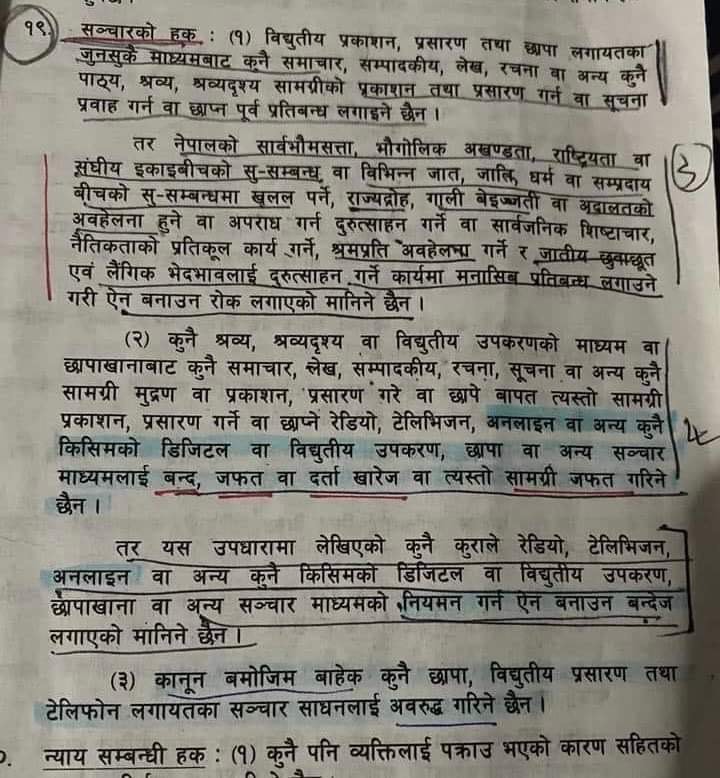 १९. सञ्चारको हक : (१) विद्युतीय प्रकाशन, प्रसारण तथा छापा लगायतका
जुनसुकै माध्यमबाट कुनै समाचार, सम्पादकीय, लेख, रचना वा अन्य कुनै
पाठ्य, श्रव्य, श्रव्यदृश्य सामग्रीको प्रकाशन तथा प्रसारण गर्न वा सूचना
प्रवाह गर्न वा छाप्न पूर्व प्रतिबन्ध लगाइने छैन ।
तर नेपालको सार्वभौमसत्ता, भौगोलिक अखण्डता, राष्ट्रियता वा
संघीय इकाइबीचको सु-सम्बन्ध वा विभिन्न जात, जाति, धर्म वा सम्प्रदाय
बीचको सु-सम्बन्धमा खलल पर्ने, राज्यद्रोह, गाली बेइज्जती वा अदालतको
अवहेलना हुने वा अपराध गर्न दुरुत्साहन गर्ने वा सार्वजनिक शिष्टाचार,
नैतिकताको प्रतिकूल कार्य गर्ने, श्रमप्रति अवहेलना गर्ने र जातीय छुवाछूत
एवं लैंगिक भेदभावलाई दुरुत्साहन गर्ने कार्यमा मनासिब प्रतिबन्ध लगाउने
गरी ऐन बनाउन रोक लगाएको मानिने छैन ।
३
(२) कुनै श्रव्य, श्रव्यदृश्य वा विद्युतीय उपकरणको माध्यम वा
छापाखानाबाट कुनै समाचार, लेख, सम्पादकीय, रचना, सूचना वा अन्य कुनै
सामग्री मुद्रण वा प्रकाशन, प्रसारण गरे वा छापे बापत त्यस्तो सामग्री
प्रकाशन, प्रसारण गर्ने वा छाप्ने रेडियो, टेलिभिजन, अनलाइन वा अन्य कुनै
किसिमको डिजिटल वा विद्युतीय उपकरण, छापा वा अन्य सञ्चार
माध्यमलाई बन्द, जफत वा दर्ता खारेज वा त्यस्तो सामग्री जफत गरिने
छैन ।
तर यस उपधारामा लेखिएको कुनै कुराले रेडियो, टेलिभिजन,
अनलाइन वा अन्य कुनै किसिमको डिजिटल वा विद्युतीय उपकरण,
छापाखाना वा अन्य सञ्चार माध्यमको नियमन गर्न ऐन बनाउन बन्देज
लगाएको मानिने छैन ।
(३) कानून बमोजिम बाहेक कुनै छापा, विद्युतीय प्रसारण तथा
टेलिफोन लगायतका सञ्चार साधनलाई अवरुद्ध गरिने छैन ।
न्याय सम्बन्धी हक : (१) कुनै पनि व्यक्तिलाई पक्राउ भएको कारण सहितको